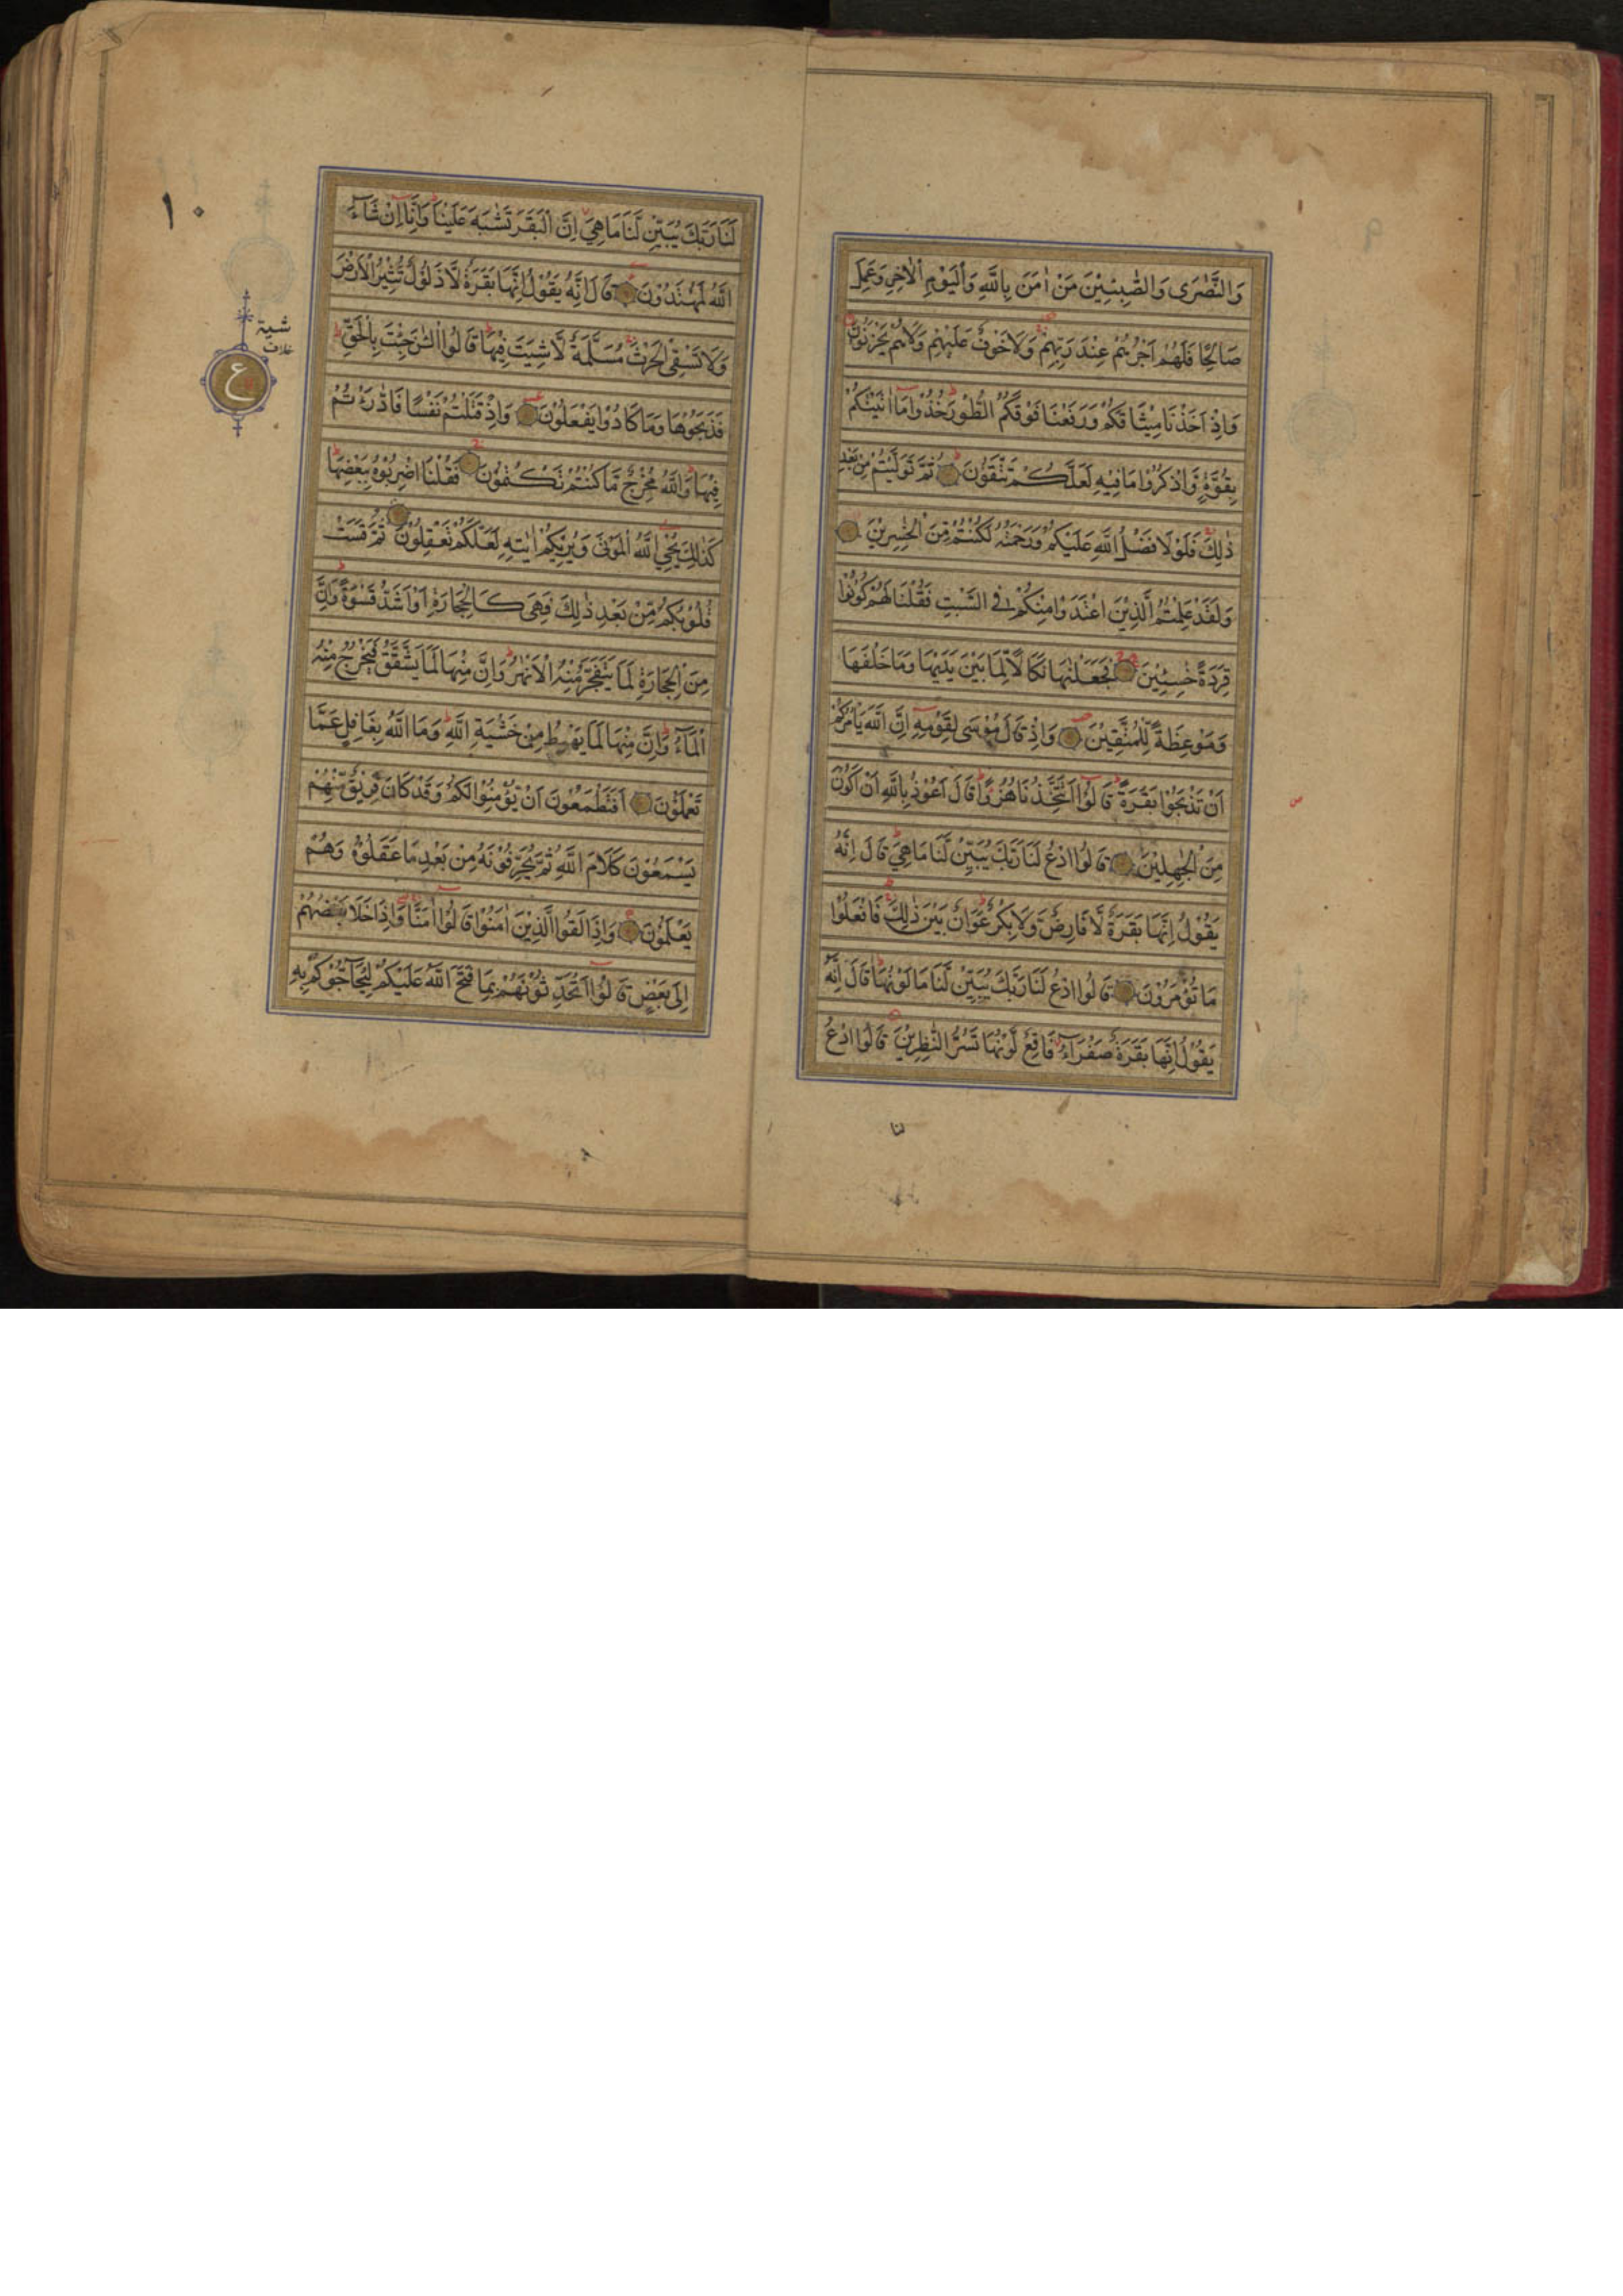 ٩
وَالنَّصٰرٰى وَالصّٰبِـِٕيْنَ مَنْ اٰمَنَ بِاللّٰهِ وَالْيَوْمِ الْاٰخِرِ وَعَمِلَ
صَالِحًا فَلَهُمْ اَجْرُهُمْ عِنْدَ رَبِّهِمْ وَلَا خَوْفٌ عَلَيْهِمْ وَلَا هُمْ يَحْزَنُوْنَ
وَاِذْ اَخَذْنَا مِيْثَاقَكُمْ وَرَفَعْنَا فَوْقَكُمُ الطُّوْرَ خُذُوْا مَا اٰتَيْنٰكُمْ
بِقُوَّةٍ وَّاذْكُرُوْا مَا فِيْهِ لَعَلَّكُمْ تَتَّقُوْنَ ثُمَّ تَوَلَّيْتُمْ مِنْ بَعْدِ
ذٰلِكَ فَلَوْلَا فَضْلُ اللّٰهِ عَلَيْكُمْ وَرَحْمَتُهُ لَكُنْتُمْ مِّنَ الْخٰسِرِيْنَ
وَلَقَدْ عَلِمْتُمُ الَّذِيْنَ اعْتَدَوْا مِنْكُمْ فِي السَّبْتِ فَقُلْنَا لَهُمْ كُوْنُوْا
قِرَدَةً خٰسِـِٕيْنَ فَجَعَلْنٰهَا نَكَالًا لِّمَا بَيْنَ يَدَيْهَا وَمَا خَلْفَهَا
وَمَوْعِظَةً لِّلْمُتَّقِيْنَ وَاِذْ قَالَ مُوْسٰى لِقَوْمِهِ اِنَّ اللّٰهَ يَاْمُرُكُمْ
اَنْ تَذْبَحُوْا بَقَرَةً قَالُوْا اَتَتَّخِذُنَا هُزُوًا قَالَ اَعُوْذُ بِاللّٰهِ اَنْ اَكُوْنَ
مِنَ الْجٰهِلِيْنَ قَالُوا ادْعُ لَنَا رَبَّكَ يُبَيِّنْ لَّنَا مَا هِيَ قَالَ اِنَّهُ
يَقُوْلُ اِنَّهَا بَقَرَةٌ لَّا فَارِضٌ وَّلَا بِكْرٌ عَوَانٌ بَيْنَ ذٰلِكَ فَافْعَلُوْا
مَا تُؤْمَرُوْنَ قَالُوا ادْعُ لَنَا رَبَّكَ يُبَيِّنْ لَّنَا مَا لَوْنُهَا قَالَ اِنَّهُ
يَقُوْلُ اِنَّهَا بَقَرَةٌ صَفْرَآءُ فَاقِعٌ لَّوْنُهَا تَسُرُّ النّٰظِرِيْنَ قَالُوا ادْعُ
لنا
١٠
لَنَا رَبَّكَ يُبَيِّنْ لَّنَا مَا هِيَ اِنَّ الْبَقَرَ تَشٰبَهَ عَلَيْنَا وَاِنَّا اِنْ شَآءَ
اللّٰهُ لَمُهْتَدُوْنَ قَالَ اِنَّهُ يَقُوْلُ اِنَّهَا بَقَرَةٌ لَّا ذَلُوْلٌ تُثِيْرُ الْاَرْضَ
وَلَا تَسْقِى الْحَرْثَ مُسَلَّمَةٌ لَّا شِيَةَ فِيْهَا قَالُوا الْـٰٔنَ جِئْتَ بِالْحَقِّ
فَذَبَحُوْهَا وَمَا كَادُوْا يَفْعَلُوْنَ وَاِذْ قَتَلْتُمْ نَفْسًا فَادّٰرَءْتُمْ
فِيْهَا وَاللّٰهُ مُخْرِجٌ مَّا كُنْتُمْ تَكْتُمُوْنَ فَقُلْنَا اضْرِبُوْهُ بِبَعْضِهَا
كَذٰلِكَ يُحْيِ اللّٰهُ الْمَوْتٰى وَيُرِيْكُمْ اٰيٰتِهِ لَعَلَّكُمْ تَعْقِلُوْنَ ثُمَّ قَسَتْ
قُلُوْبُكُمْ مِّنْ بَعْدِ ذٰلِكَ فَهِيَ كَالْحِجَارَةِ اَوْ اَشَدُّ قَسْوَةً وَاِنَّ
مِنَ الْحِجَارَةِ لَمَا يَتَفَجَّرُ مِنْهُ الْاَنْهٰرُ وَاِنَّ مِنْهَا لَمَا يَشَّقَّقُ فَيَخْرُجُ مِنْهُ
الْمَآءُ وَاِنَّ مِنْهَا لَمَا يَهْبِطُ مِنْ خَشْيَةِ اللّٰهِ وَمَا اللّٰهُ بِغَافِلٍ عَمَّا
تَعْمَلُوْنَ اَفَتَطْمَعُوْنَ اَنْ يُّؤْمِنُوْا لَكُمْ وَقَدْ كَانَ فَرِيْقٌ مِّنْهُمْ
يَسْمَعُوْنَ كَلَامَ اللّٰهِ ثُمَّ يُحَرِّفُوْنَهُ مِنْ بَعْدِ مَا عَقَلُوْهُ وَهُمْ
يَعْلَمُوْنَ وَاِذَا لَقُوا الَّذِيْنَ اٰمَنُوْا قَالُوْا اٰمَنَّا وَاِذَا خَلَا بَعْضُهُمْ
اِلٰى بَعْضٍ قَالُوْا اَتُحَدِّثُوْنَهُمْ بِمَا فَتَحَ اللّٰهُ عَلَيْكُمْ لِيُحَآجُّوْكُمْ بِهِ
شية
خلاف
ع